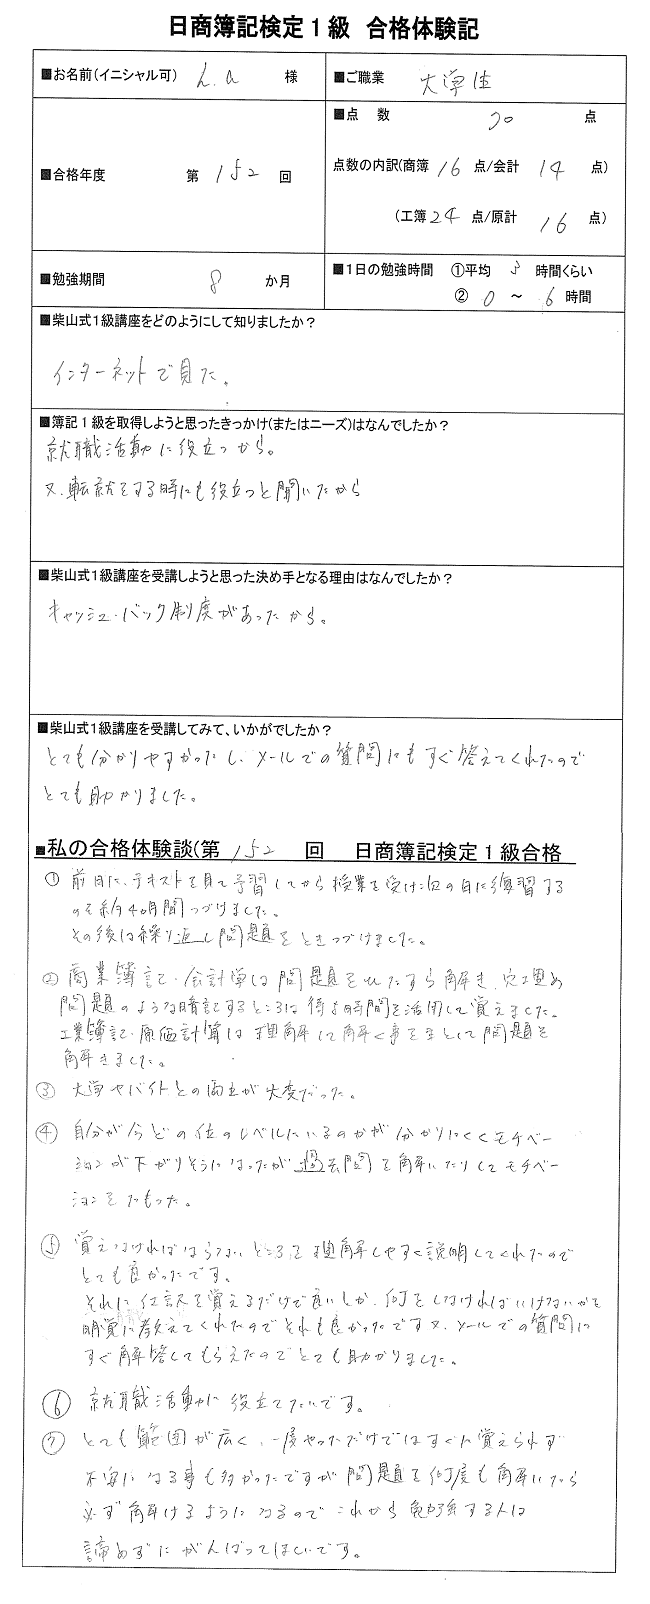 日商簿記検定1級 合格体験記
■お名前(イニシャル可) L.a 様
■ご職業 大学生
■合格年度 第 152 回
■点数 70 点
点数の内訳(商簿 16 点/会計 14 点)
(工簿 24 点/原計 16 点)
■勉強期間 8 か月
■1日の勉強時間 ①平均 3 時間くらい
② 0 ～ 6 時間
■柴山式1級講座をどのようにして知りましたか？
インターネットで見た。
■簿記1級を取得しようと思ったきっかけ(またはニーズ)はなんでしたか？
就職活動に役立つから。
又、転就をする時にも役立つと聞いたから
■柴山式1級講座を受講しようと思った決め手となる理由はなんでしたか？
キャッシュ・バック制度があったから。
■柴山式1級講座を受講してみて、いかがでしたか？
とても分かりやすかったし、メールでの質問にもすぐ答えてくれたので
とても助かりました。
■私の合格体験談(第 152 回 日商簿記検定1級合格
① 前日に、テキストを見て予習してから授業を受け次の日に復習する
のを約4ヵ月間つづけました。
その後は繰り返し問題をときつづけました。
② 商業簿記・会計学は問題をひたすら解き、穴埋め
問題のような暗記するところは待ち時間を活用して覚えました。
工業簿記・原価計算は理解して解く事を主として問題を
解きました。
③ 大学やバイトとの両立が大変だった。
④ 自分が今どの位のレベルにいるのかが分かりにくくモチベー
ションが下がりそうになったが過去問を解いたりしてモチベー
ションをたもった。
⑤ 覚えなければならないところを理解しやすく説明してくれたので
とても良かったです。
それに仕訳を覚えるだけで良いしか、何をしなければいけないかを
明覚に教えてくれたのでそれも良かったです又、メールでの質問に
すぐ解答してもらえたのでとても助かりました。
⑥ 就職活動に役立てたいです。
⑦ とても範囲が広く、一度やっただけではすぐに覚えられず
不安になる事も多かったですが問題を何度も解いたら
必ず解けるようになるのでこれから勉強する人は
諦めずにがんばってほしいです。